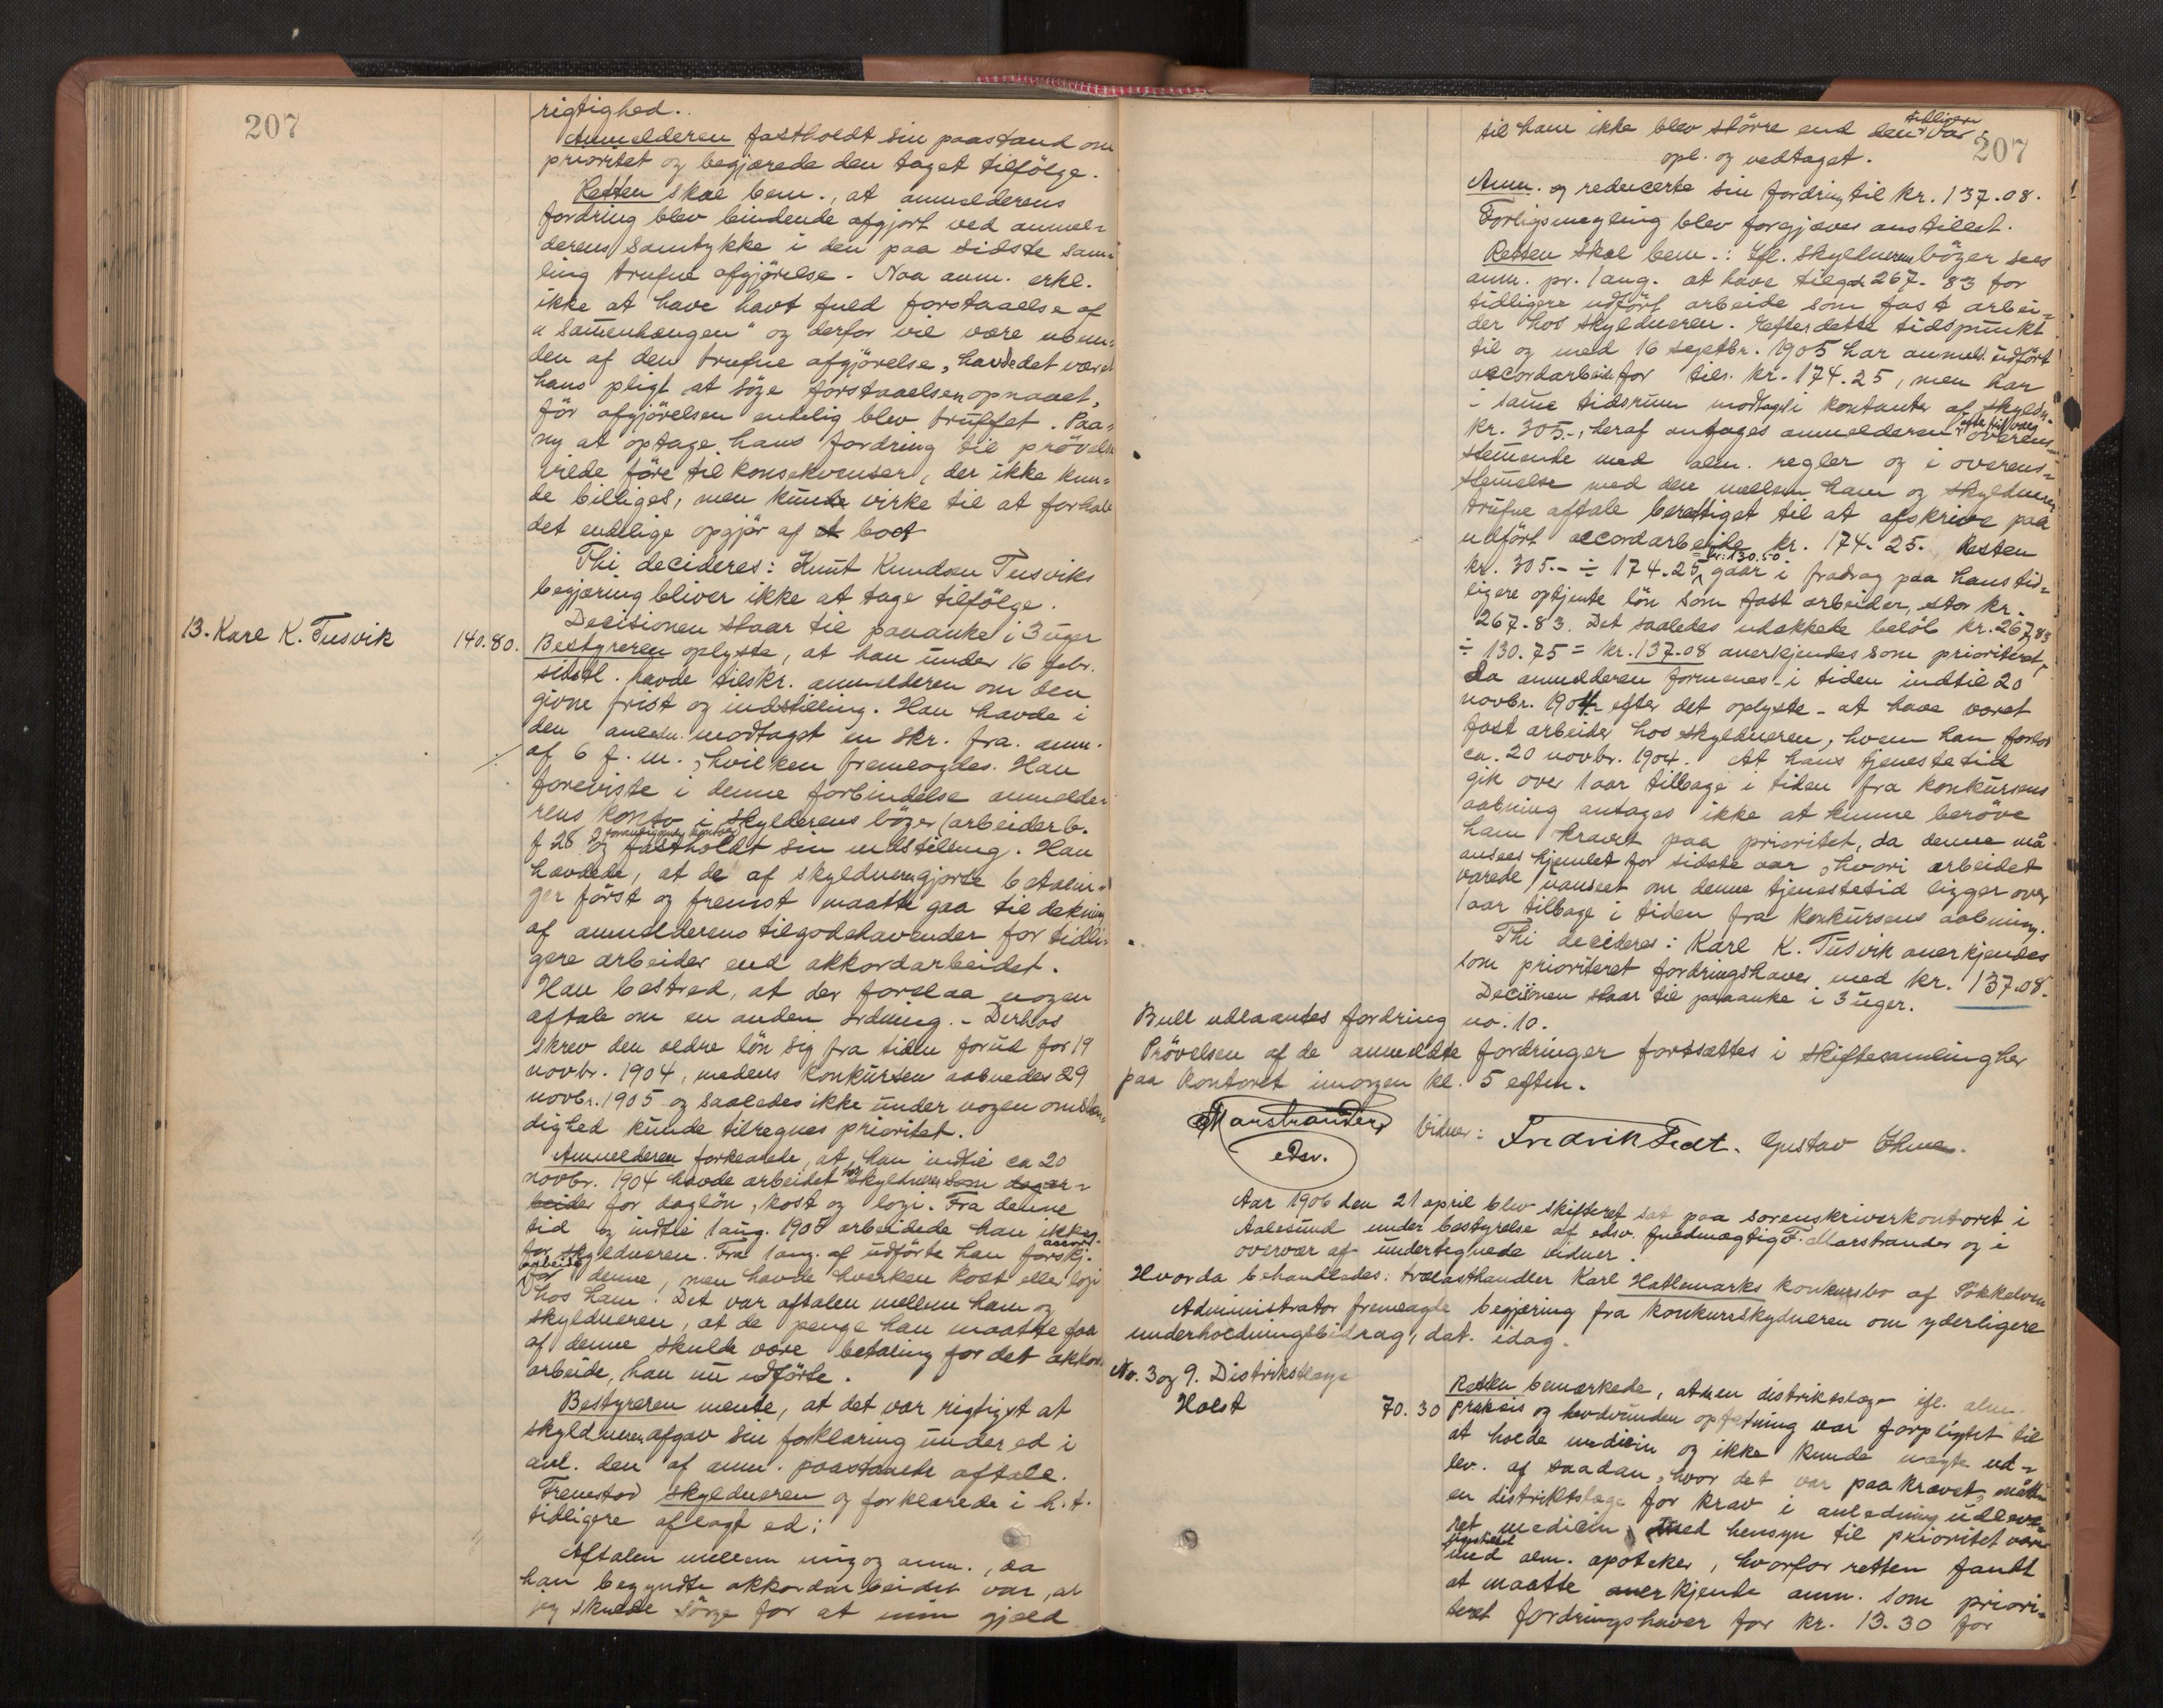 207
rigtighed.
Anmelderen fastholdt sin paastand om
prioritet og begjærede den taget tilfölge.
Retten skal bem., at anmelderens
fordring blev bindende afgjort ved anmel-
derens samtykke i den paa sidste sam-
ling trufne afgjörelse. Naa anm. erkl.
ikke at have havt fuld forstaaelse af
"samenhængen" og derfor vil være ubun-
den af den trufne afgjörelse, havde det været
hans pligt at söge forstaaelsen opnaaet,
för afgjörelsen endelig blev truffet. Paa-
ny at optage hans fordring til prövelse
vilde före til konsekvenser, der ikke kun-
de billiges, men kunde virke til at forhale
det endelige opgjör af boet
Thi decideres: Knut Knudsen Tusviks
begjæring bliver ikke at tage tilfölge.
Decisionen staar til paaanke i 3 uger
13. Karl K. Tusvik 140.80. Bestyreren oplyste, at han under 16 febr.
sidstl. havde tilskr. anmelderen om den
givne frist og indstilling. Han havde i
den anledn. modtaget en skr. fra anm.
af 6 f. m., hvilken fremlagdes. Han
foreviste i denne forbindelse anmelde-
rens konto i skylderens böger (arbeiderb.
f 28 og foranstaaende kontoer)
fastholdt sin indstilling. Han
hævdede, at de af skyldneren gjorte betalin-
ger först og fremst maatte gaa til dekning
af anmelderens tilgodehavender for tidli-
gere arbeider end akkordarbeidet.
Han bestred, at der forelaa nogen
aftale om en anden ordning. - Derhos
skrev den ældre lön sig fra tiden forud for 19
novbr. 1904, medens konkursen aabnedes 29
novbr. 1905 og saaledes ikke under nogen omstæn-
dighed kunde tilregnes prioritet.
Anmelderen forklarede, at han indtil ca 20
novbr. 1904 havde arbeidet hos skyldneren som dagar-
beider for daglön, kost og logi. Fra denne
tid og indtil 1 aug. 1905 arbeidede han ikke
for skyldneren. Fra 1 aug. af udförte han forskj. accord-
arbeide for denne, men havde hverken kost eller logi
hos ham! Det var aftalen mellem ham og
skyldneren, at de penge han maatte faa
af denne skulde være betaling for det akkord-
arbeide, han nu udförte.
Bestyreren mente, at det var rigtigst at
skyldneren afgav sin forklaring under ed i
anl. den af anm. paastaaede aftale.
Fremstod skyldneren og forklarede i h. t.
tidligere aflagt ed:
Aftalen mellem mig og anm., da
han begyndte akkordarbeidet var, at
jeg skulde sörge for at min gjæld
207
til ham ikke blev större end den tidligere var.
opl. og vedtaget.
Anm. og reducerte sin fordring til kr. 137.08.
Forligsmegling blev forgjæves anstillet.
Retten skal bem.: Ifl. skyldnerens böger sees
anm. pr. 1 aug. at have tilgode 267.83 for
tidligere udfört arbeide som fast arbei-
der hos skyldneren. Efter dette tidspunkt
til og med 16 septbr. 1905 har anmeld. udfört
accordarbeide for tils. kr. 174.25, men har
i same tidsrum modtaget i kontanter af skyldn.
kr. 305.-, heraf antages anmelderen overens-
stemmende med alm. regler og i overens-
stemmelse med den mellem ham og skyldneren
trufne aftale berettiget til at afskrive paa
udfört accordarbeide kr. 174.25. Resten
kr. 305.- ÷ 174.25 = kr. 130.50 gaar i fradrag paa hans tid-
ligere optjente lön som fast arbeider, stor kr.
267.83. Det saaledes udækkede belöb kr. 267.83
÷ 130.75 = kr. 137.08 anerkjendes som prioriteret,
da anmelderen formenes i tiden indtil 20
novbr. 1904 efter det oplyste - at have været
fast arbeider hos skyldneren, hvem han forlod
ca. 20 novbr. 1904. At hans tjenestetid
gik over 1 aar tilbage i tiden fra konkursens
aabning antages ikke at kunne beröve
ham kravet paa prioritet, da denne må
ansees hjemlet for sidste aar, hvori arbeidet
varede, uanseet om denne tjenestetid ligger over
1 aar tilbage i tiden fra konkursens aabning.
Thi decideres: Karl K. Tusvik anerkjendes
som prioriteret fordringshaver med kr. 137.08.
Decisionen staar til paaanke i 3 uger.
Bull udlaantes fordring no. 10.
Prövelsen af de anmeldte fordringer fortsættes i skiftesamling her
paa kontoret imorgen kl. 5 eftm.
Marstrander
edsv.
Vidner: Fredrik Fedt. Gustav
Aar 1906 den 21 april blev skifteret sat paa sorenskriverkontoret i
Aalesund under bestyrelse af edsv. fuldmægtig F. Marstrander og i
overvær af undertegnede vidner.
Hvorda behandledes: trælasthandler Karl Hatlemarks konkursbo af Sökkelven
Administrator fremlagde begjæring fra konkursskyldneren om yderligere
underholdningsbidrag, dat. idag.
No. 3 og 9. Distriktslæge
Holst 70.30 Retten bemærkede, at den distriktslæge ifl. alm.
praksis og hævdvunden opfatning var forpligtet til
at holde medicin og ikke kunde nægte ud-
lev. af saadan, hvor det var paakrævet, måtte
en distriktslæge for krav i anledning udleve-
ret medicin med hensyn til prioritet være
ligestillet
med alm. apoteker, hvorfor retten fandt
at maatte anerkjende anm. som priori-
teret fordringshaver for kr. 13.30 for